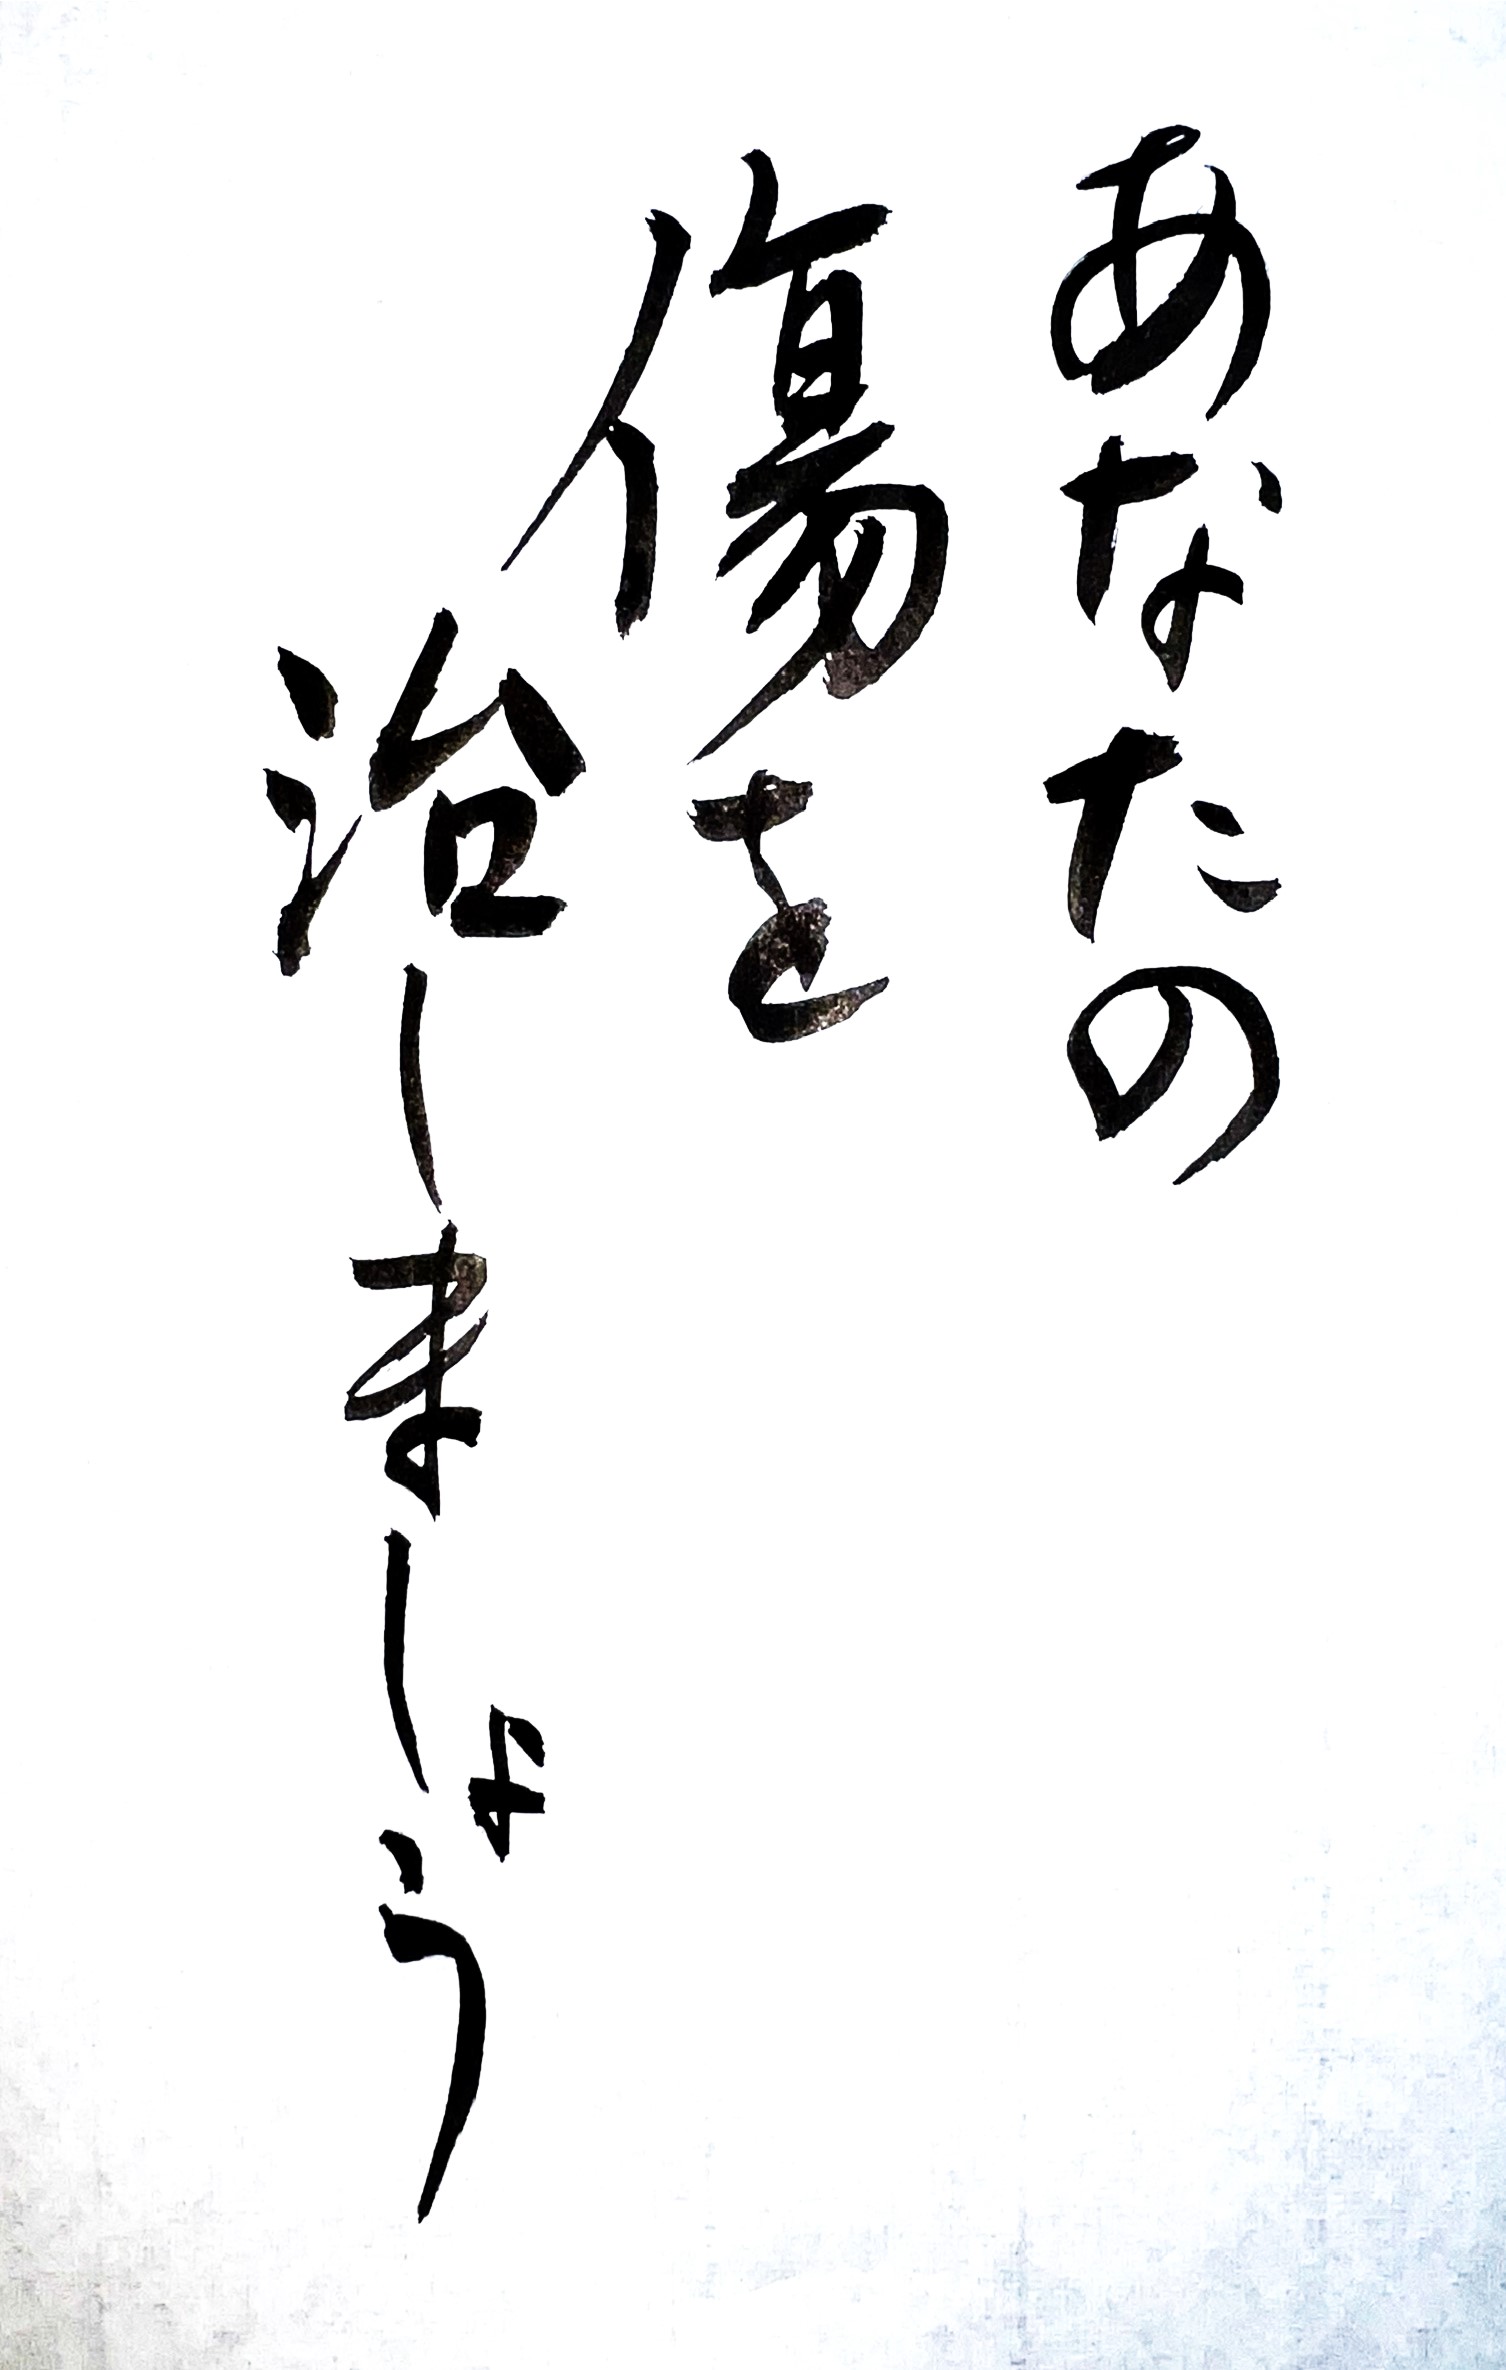 あなたの
傷を
治しましょう